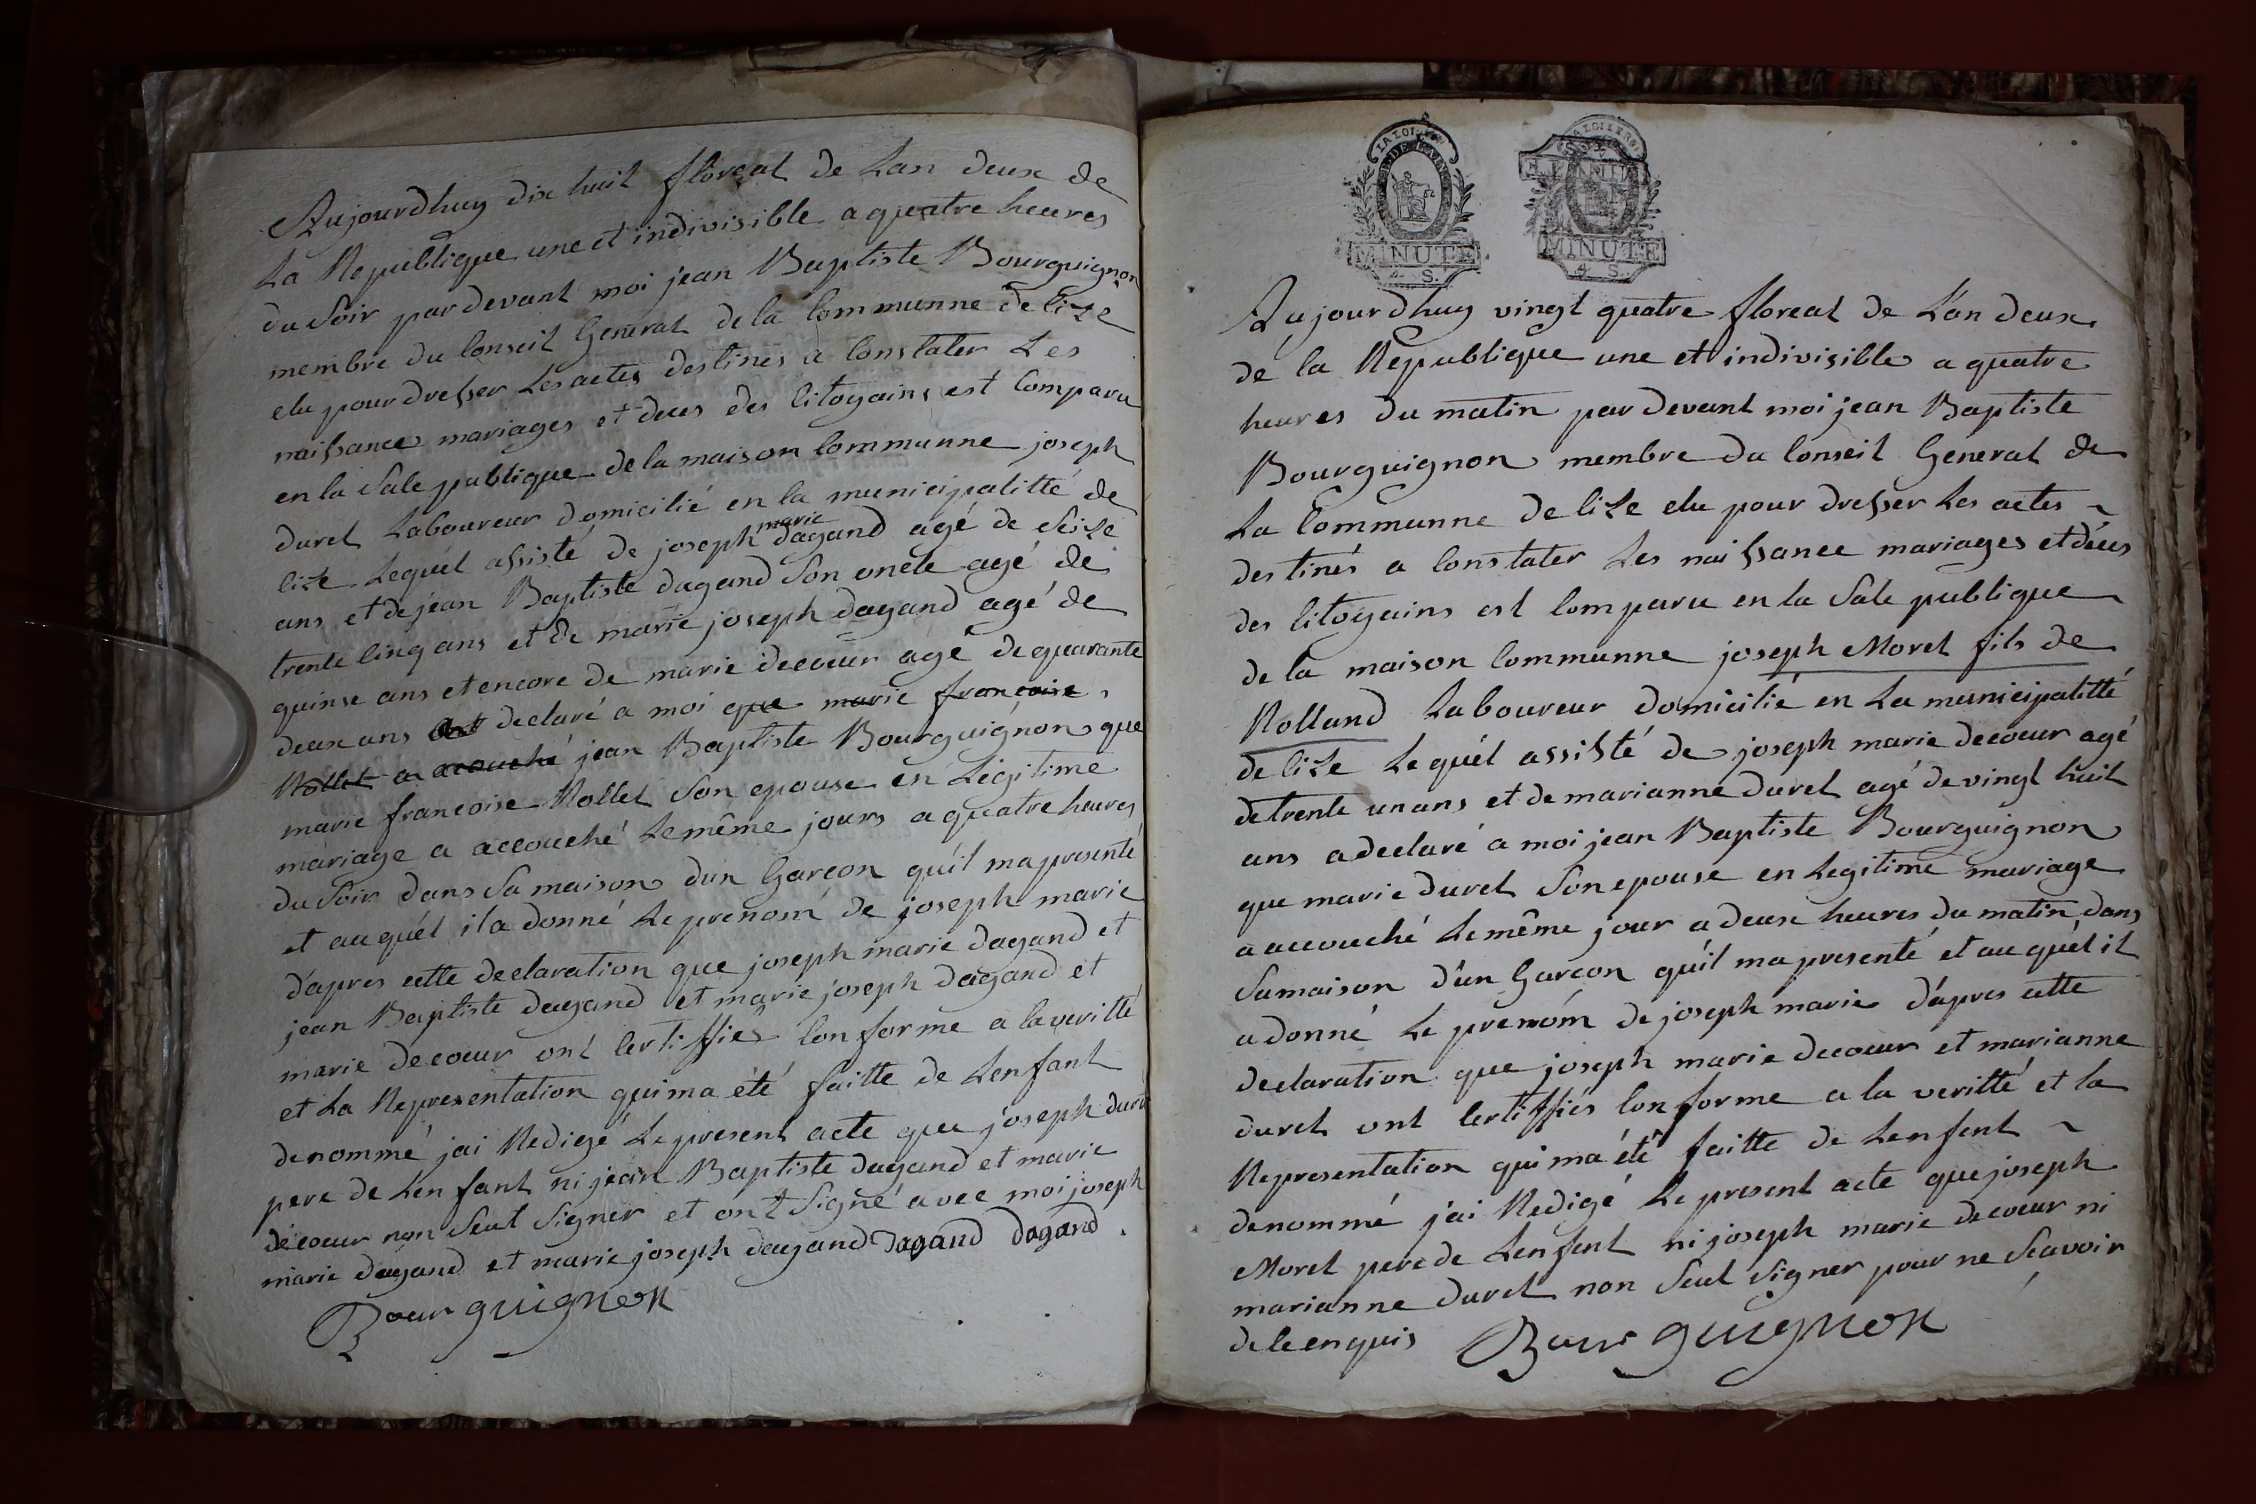 Aujourdhuy dix huit floreal de Lan deux de
La Republique une et indivisible a quatre heures
du Soir pardevant moi jean Baptiste Bourguignon
membre du Conseil General de la Communne de Cize
elu pour dresser Les actes destinés a Constater Les
naissance mariages et deces des Citoyains est Comparu
en la Sale publique de la maison Communne joseph
duret Laboureur domicilié en la municipalitté de
Cize Lequél assisté de joseph marie dagand agé de Seize
ans et de jean Baptiste dagand Son oncle agé de
trente Cinq ans et de marie joseph dagand agé de
quinse ans et encore de marie decoeur agé de quarante
deux ans ont declaré a moi que marie francoise
Rollet a acouché jean Baptiste Bourguignon que
marie francoise Rollet Son epouse en Légitime
mariage a accouché Le même jours a quatre heures
du Soir dans Sa maison dun Garcon qu'il ma presenté
et auquél il a donné Le prenom de joseph marie
d'apres cette declaration que joseph marie dagand et
jean Baptiste dagand et marie joseph dagand et
marie decoeur ont Certiffiés Conforme a la veritté
et La Representation qui ma été faitte de Lenfant
denommé jai Redigé Le present acte que joseph duret
pere de Lenfant ni jean Baptiste dagand et marie
decoeur non Seut Signer et ont Signé avec moi joseph
marie dagand et marie joseph dagand Dagand dagand
Bourguignon
LA LOI
MINUTE
4. S.
MINUTE
4. S.
Aujourdhuy vingt quatre floreal de L'an deux
de la Republique une et indivisible a quatre
heures du matin pardevant moi jean Baptiste
Bourguignon membre du Conseil General de
La Communne de Cize elu pour dresser Les actes
destinés a Constater Les naissance mariages et déces
des Citoyains est Comparu en la Sale publique
de la maison Communne joseph Moret fils de
Rolland Laboureur domicilié en La municipalitté
de Cize Lequél assisté de joseph marie decoeur agé
de trente un ans et de marianne duret agé de vingt huit
ans a declaré a moi jean Baptiste Bourguignon
que marie duret Son epouse en Legitime mariage
a accouché Le même jour a deux heures du matin dans
Sa maison d'un Garcon qu'il ma presenté et au quél il
a donné Le prenom de joseph marie d'apres cette
declaration que joseph marie decoeur et marianne
duret ont Certiffiés Conforme a la veritté et la
Representation qui ma été faitte de Lenfent
denommé j'ai Redigé Le present acte que joseph
Moret pere de Lenfent ni joseph marie decoeur ni
marianne duret non Seut Signer pour ne Scavoir
de Ce enquis Bourguignon